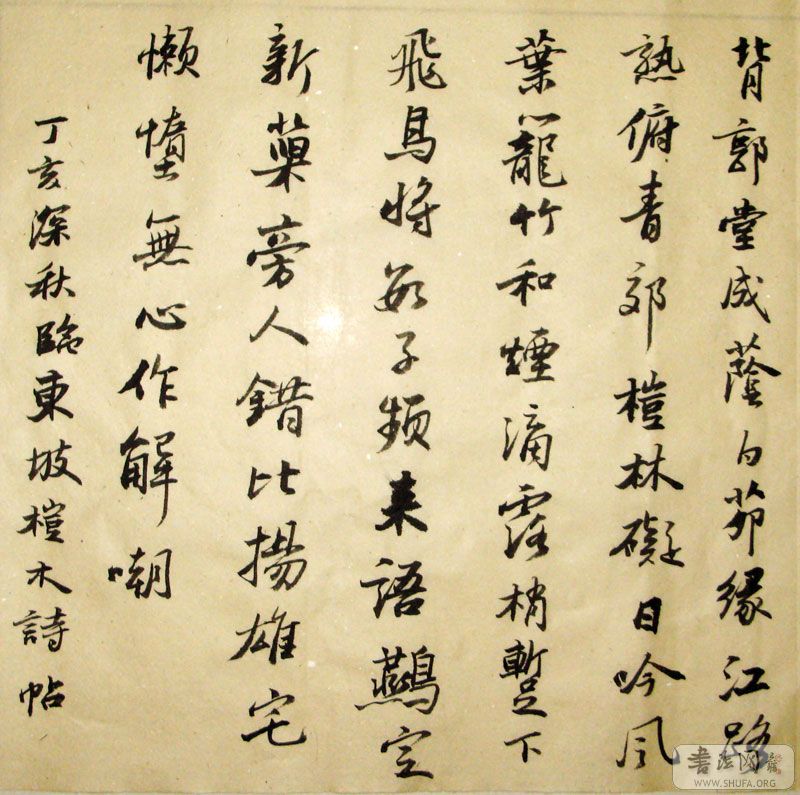 背郭堂成蔭白茆緣江路
熟俯青郊榿林礙日吟風
葉籠竹和煙滴露梢蹔下
飛烏將數子頻來語鷰定
新巢旁人錯比揚雄宅
懶墮無心作解嘲
丁亥深秋臨東坡榿木詩帖
書法网
WWW.SHUFA.ORG